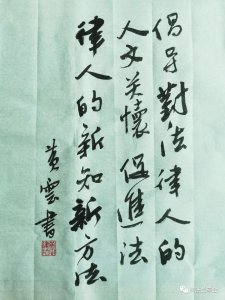 倡导對法律人的
人文关懷促進法
律人的新知新方法
黄雲書